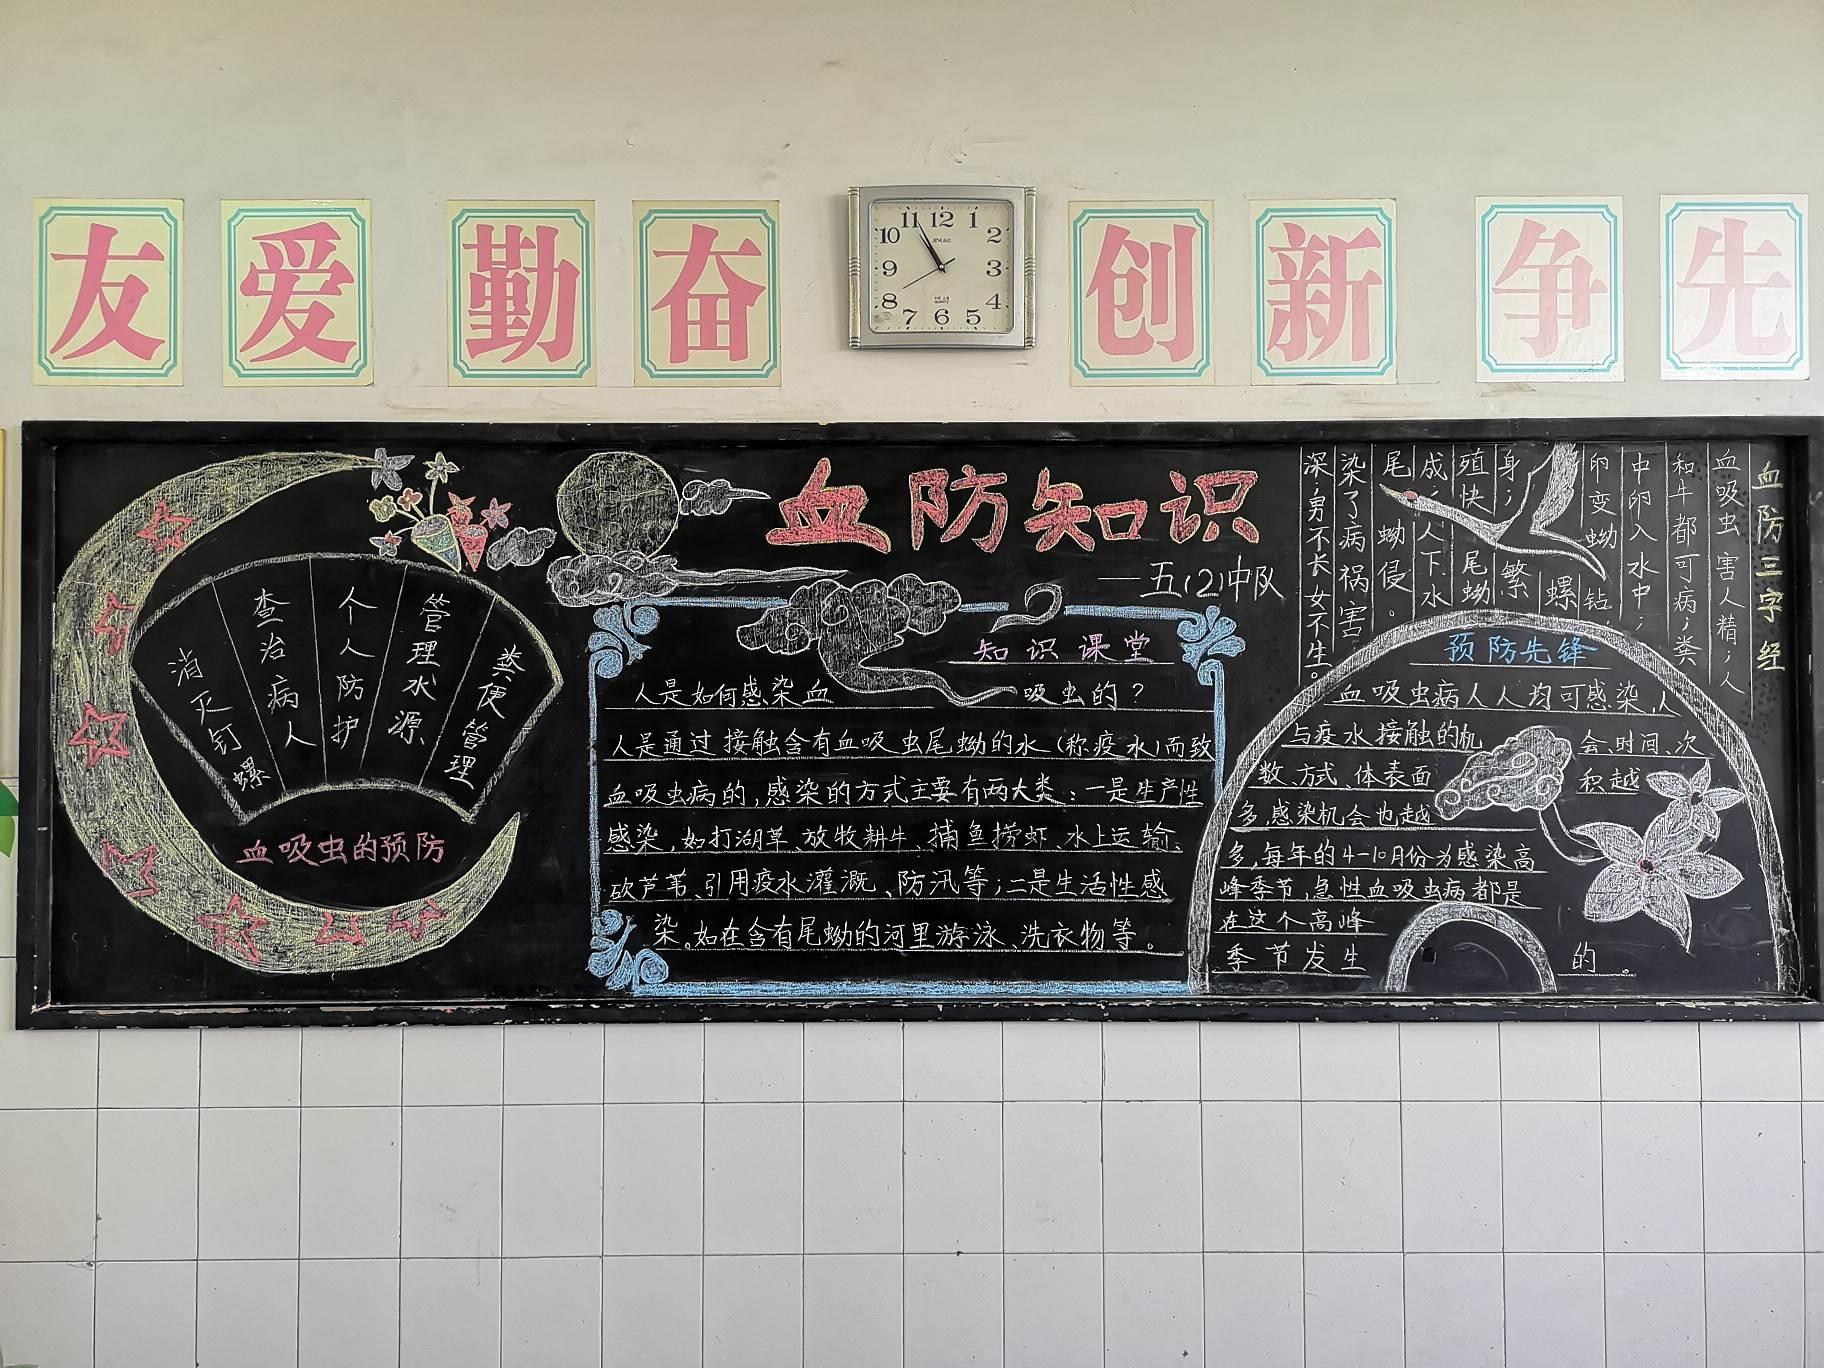 友爱 勤奋 创新 争先
11 12 1
10 2
9 3
8 4
7 6 5
血防知识
—五(2)中队
消灭钉螺
查治病人
个人防护
管理水源
粪便管理
血吸虫的预防
知识课堂
人是如何感染血吸虫的?
人是通过接触含有血吸虫尾蚴的水(称疫水)而致
血吸虫病的,感染的方式主要有两大类:一是生产性
感染,如打湖草、放牧耕牛、捕鱼捞虾、水上运输、
砍芦苇、引用疫水灌溉、防汛等;二是生活性感
染。如在含有尾蚴的河里游泳、洗衣物等。
血防三字经
血吸虫害人精;人
和牛都可病;粪
中卵入水中;
卵变蚴钻
螺
身;繁
殖快尾蚴
成;人下水
尾蚴侵。
染了病祸害
深;男不长女不生。
预防先锋
血吸虫病人人均可感染,人
与疫水接触的机会、时间、次
数、方式、体表面积越
多,感染机会也越
多,每年的4-10月份为感染高
峰季节,急性血吸虫病都是
在这个高峰
季节发生的。